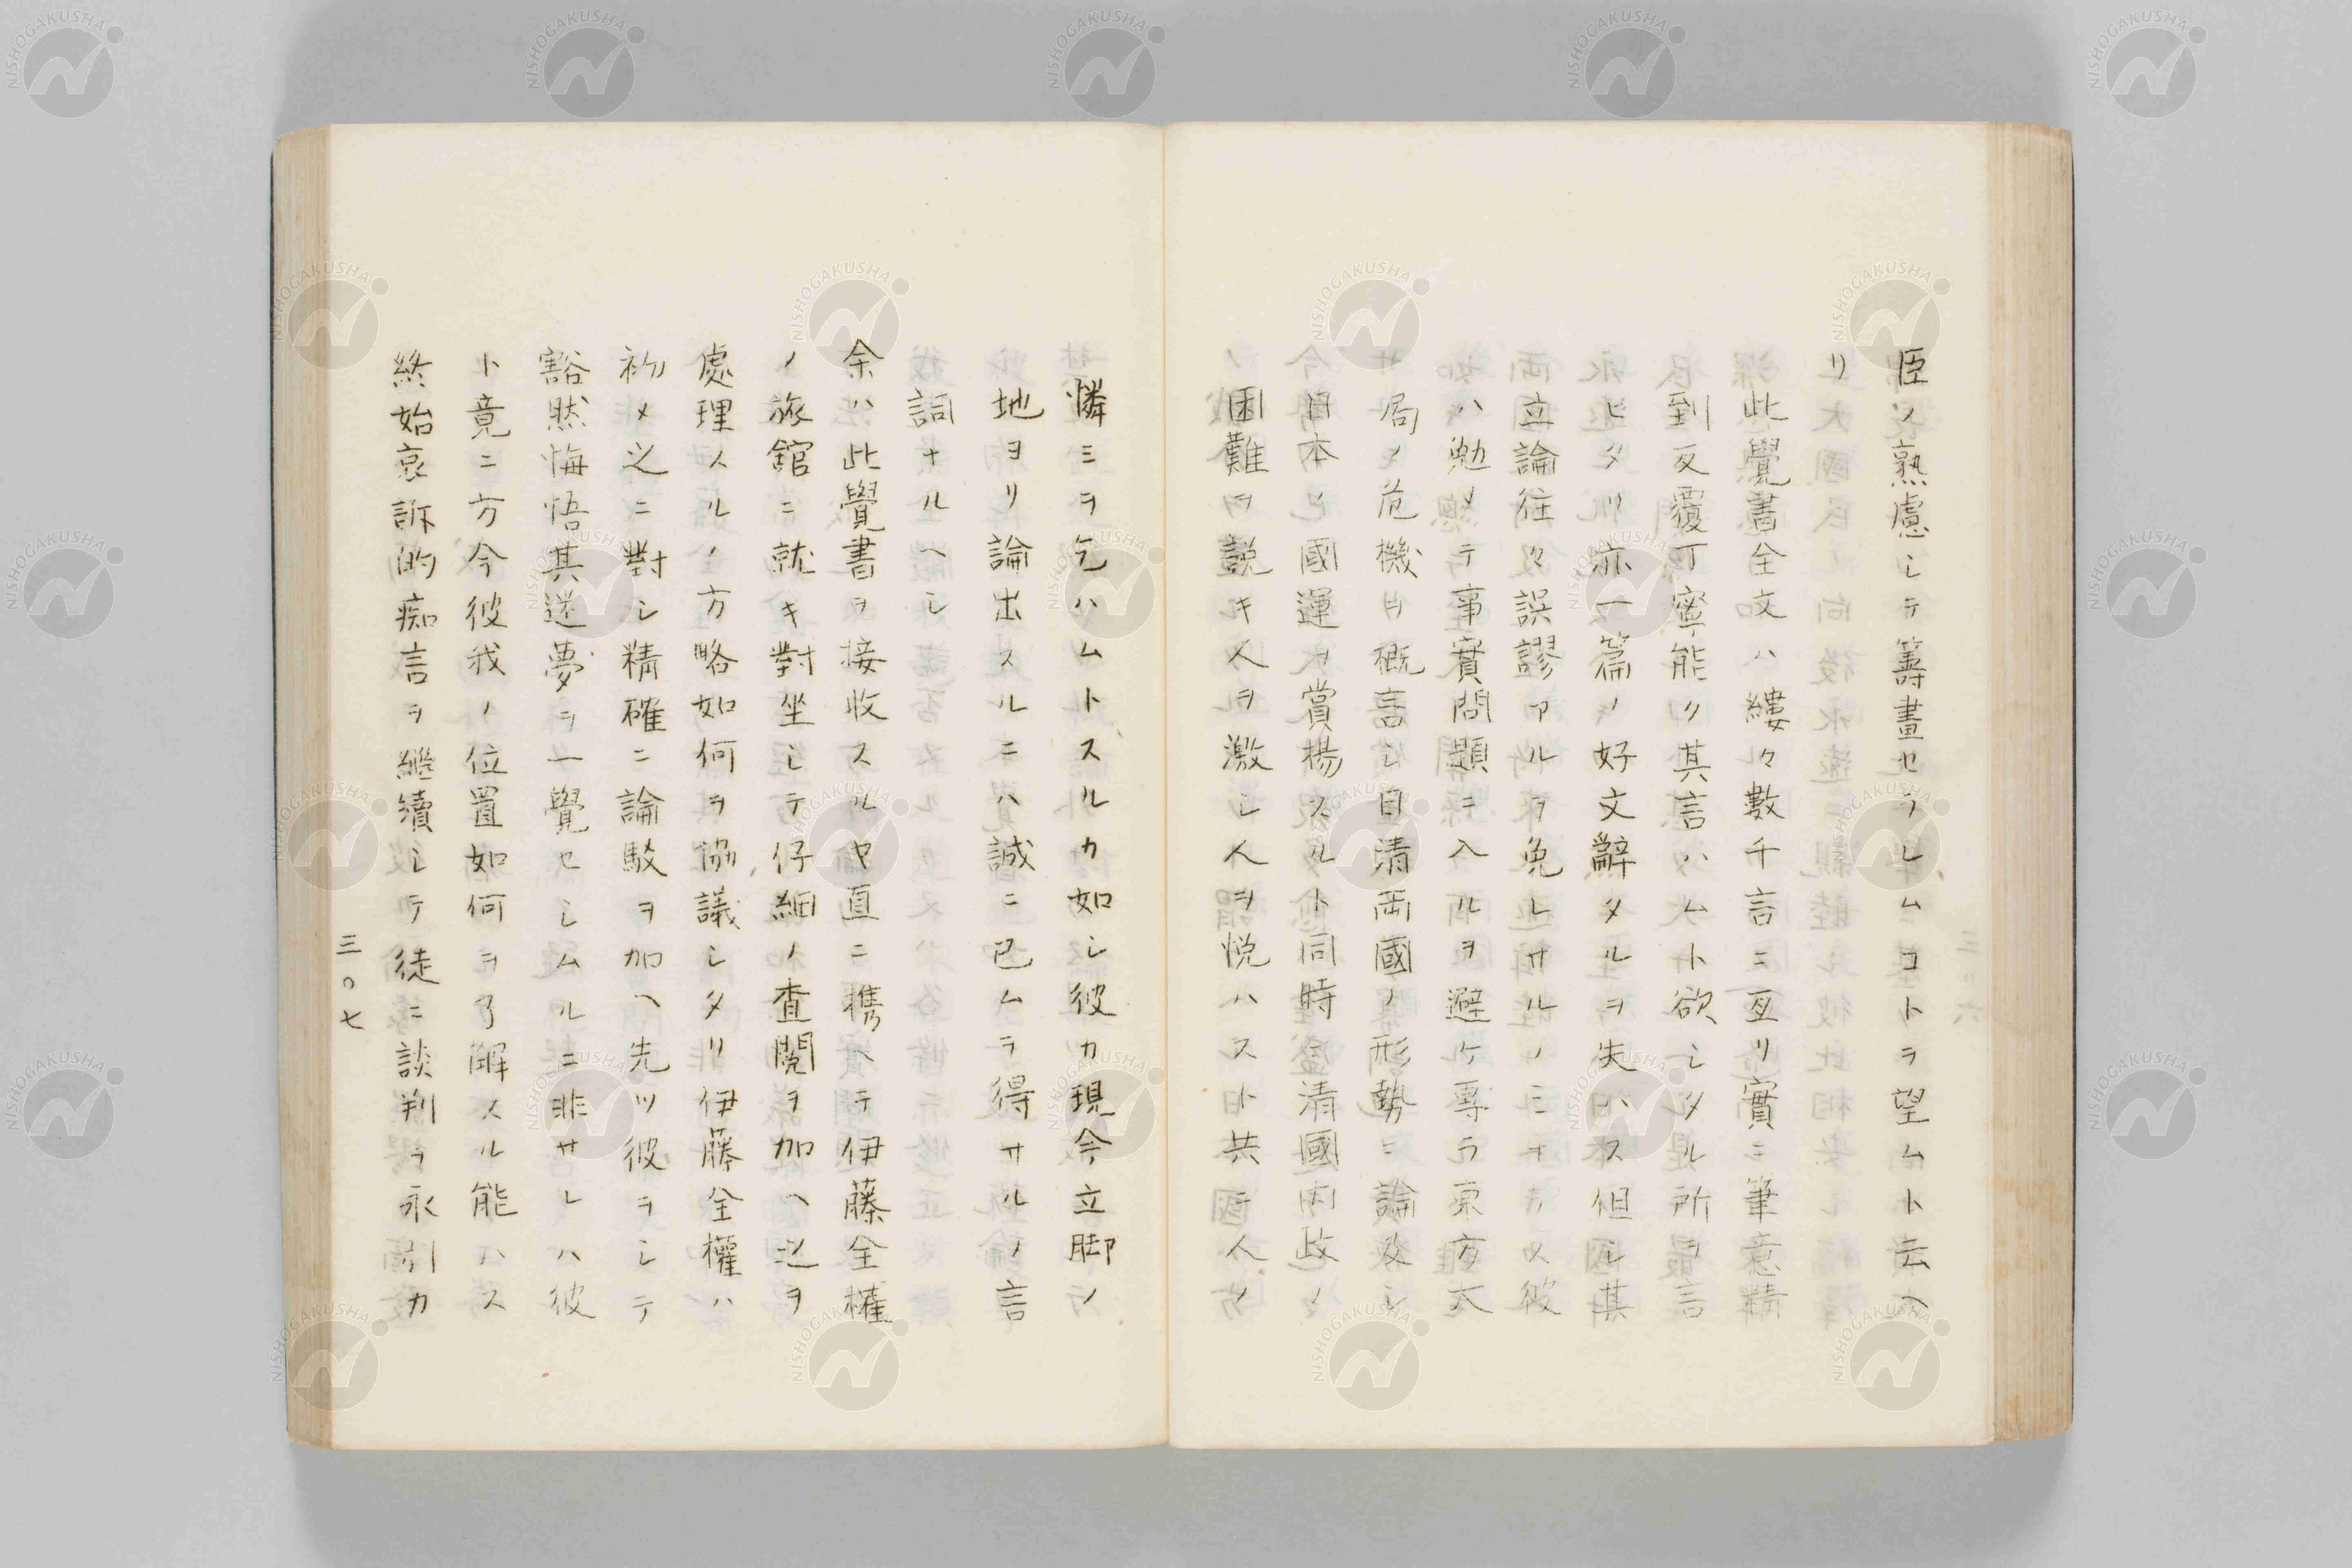 臣ノ熟慮シテ籌畫セラレムコトヲ望ムト云ヘ
リ
此覺書全文ハ縷々數千言ニ亙リ實ニ筆意精
到反覆丁寧能ク其言ハムト欲シタル所ヲ言
ヒタリ亦一篇ノ好文辭タルヲ失ハス但シ其
立論往々誤謬アルヲ免レサルノミナラス彼
ハ勉メテ事實問題ニ入ルヲ避ケ專ラ東方大
局ノ危機ヲ概言シ日清兩國ノ形勢ニ論及シ
日本ノ國運ヲ賞揚スルト同時ニ清國内政ノ
困難ヲ説キ人ヲ激シ人ヲ悦ハスト共ニ人ノ
憐ミヲ乞ハムトスルカ如シ彼カ現今立脚ノ
地ヨリ論出スルニハ誠ニ已ムヲ得サルノ言
詞ナルヘシ
余ハ此覺書ヲ接收スルヤ直ニ携ヘテ伊藤全權
ノ旅館ニ就キ對坐シテ仔細ノ査閲ヲ加ヘ之ヲ
處理スルノ方略如何ヲ協議シタリ伊藤全權ハ
初メ之ニ對シ精確ニ論駁ヲ加ヘ先ツ彼ヲシテ
豁然悔悟其迷夢ヲ一覺セシムルニ非サレハ彼
ト竟ニ方今彼我ノ位置如何ヲ了解スル能ハス
終始哀訴的痴言ヲ繼續シテ徒ニ談判ヲ永引カ
三〇七